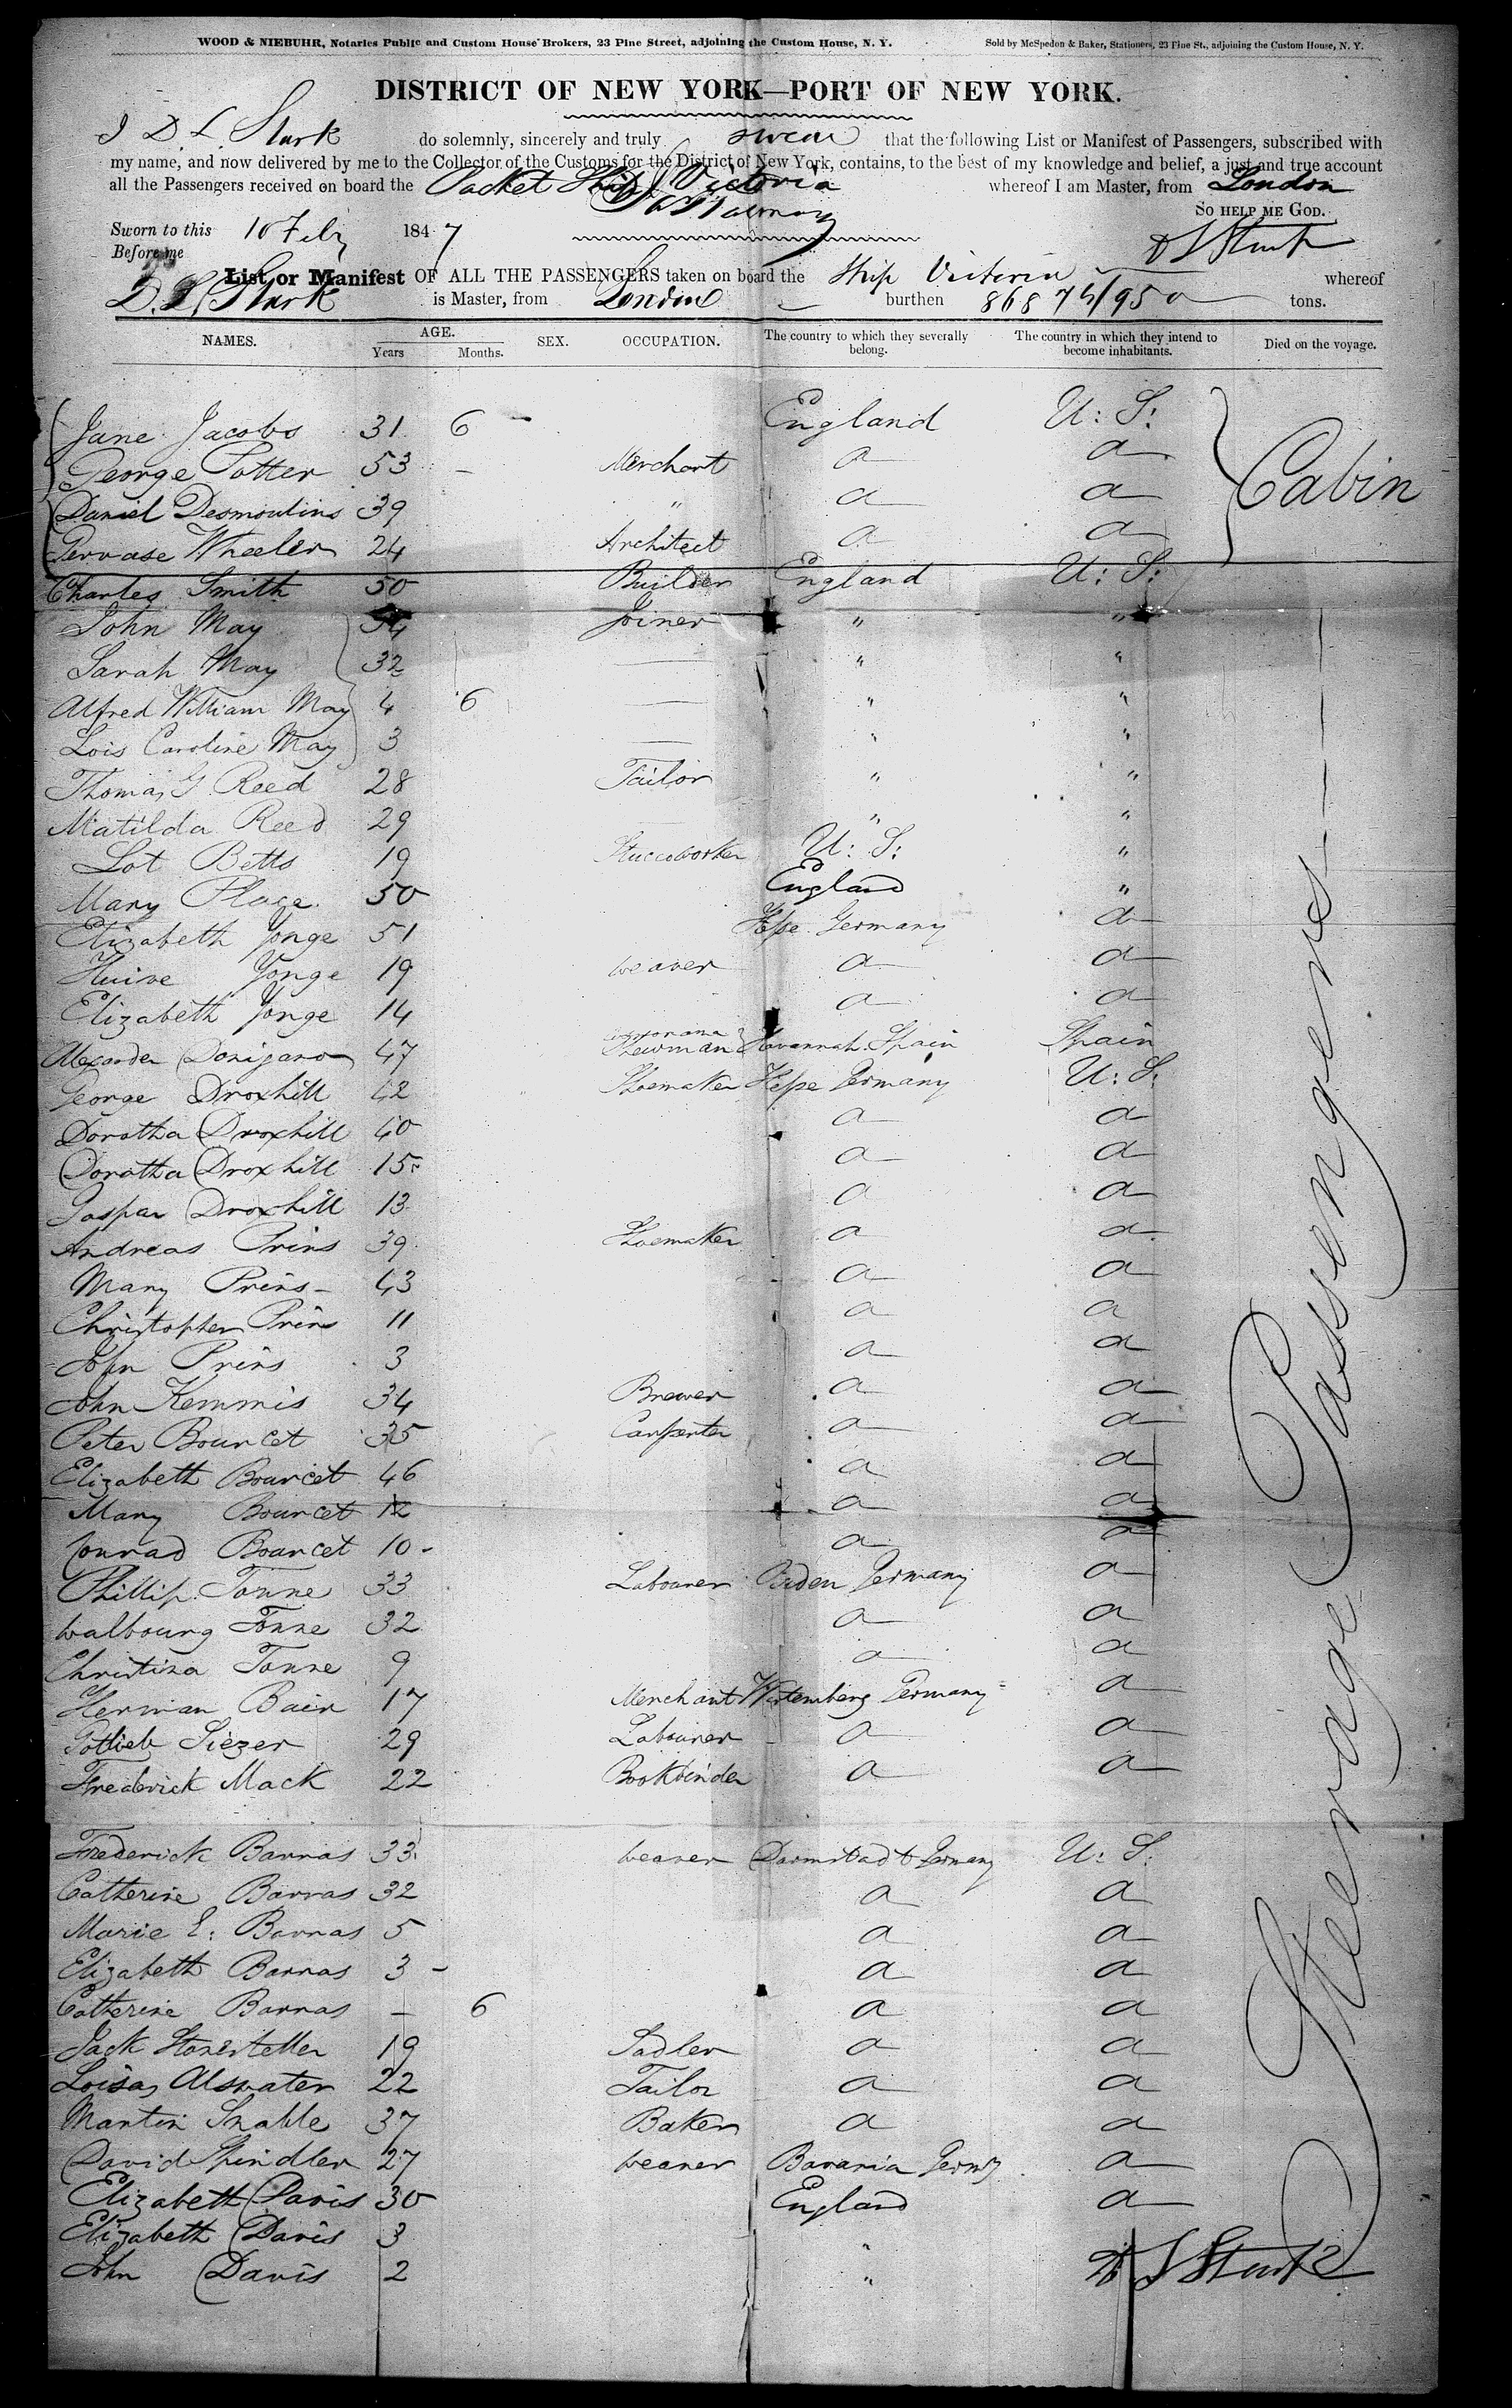 WOOD & NIEBUHR, Notaries Public and Custom House Brokers, 23 Pine Street, adjoining the Custom House, N. Y. Sold by McSpedon & Baker, Stationers, 23 Pine St., adjoining the Custom House, N. Y.
DISTRICT OF NEW YORK—PORT OF NEW YORK.
I D. L. Stark do solemnly, sincerely and truly swear that the following List or Manifest of Passengers, subscribed with
my name, and now delivered by me to the Collector of the Customs for the District of New York, contains, to the best of my knowledge and belief, a just and true account
all the Passengers received on board the Packet Ship Victoria whereof I am Master, from London
SO HELP ME GOD.
Sworn to this 10 Feby 1847
Before me D L Stark
List or Manifest OF ALL THE PASSENGERS taken on board the Ship Victoria whereof
D. L. Stark is Master, from London burthen 868 74/95 tons.
NAMES. AGE. Years Months. SEX. OCCUPATION. The country to which they severally belong. The country in which they intend to become inhabitants. Died on the voyage.
Jane Jacobs 31 6 England U: S:
George Potter 53 – Merchant a a
Daniel Desmoulins 39 " a a
Gervase Wheeler 24 Architect a a
Cabin
Charles Smith 50 Builder England U: S:
John May 34 Joiner " "
Sarah May 32 " "
Alfred William May 4 6 " "
Lois Caroline May 3 " "
Thomas G Reed 28 Tailor " "
Matilda Reed 29 " "
Lot Betts 19 Stuccoworker U: S: "
Mary Place 50 England "
Elizabeth Yonge 51 Hesse Germany a
Yonge 19 weaver a a
Elizabeth Yonge 14 a a
Alexander Donigano 47 Showman Havannah. Spain Spain
George Droxhill 42 Shoemaker Hesse Germany U: S.
Dorotha Droxhill 40 a a
Dorotha Droxhill 15 a a
Gaspar Droxhill 13 a a
Andreas Prins 39 Shoemaker a a
Mary Prins 43 a a
Christopher Prins 11 a a
John Prins 3 a a
John Kemmis 34 Brewer a a
Peter Bourcet 35 Carpenter a a
Elizabeth Bourcet 46 a a
Mary Bourcet 12 a a
Conrad Bourcet 10 a a
Phillip Tonne 33 Labourer Baden Germany a
Walbourg Tonne 32 a a
Christina Tonne 9 a a
Herman Bair 17 Merchant Wirtemberg Germany a
Gottlieb Siezer 29 Labourer a a
Frederick Mack 22 Bookbinder a a
Frederick Barnas 33 weaver Darmstadt Germany U: S:
Catherine Barnas 32 a a
Marie E: Barnas 5 a a
Elizabeth Barnas 3 – a a
Catherine Barnas – 6 a a
Jack Stonesteller 19 Sadler a a
Loisa Alswater 22 Tailor a a
Martin Snable 37 Baker a a
David Spindler 27 weaver Bavaria Germy a
Elizabeth Davis 30 England a
Elizabeth Davis 3 "
John Davis 2 "
D L Stark
Steerage Passengers